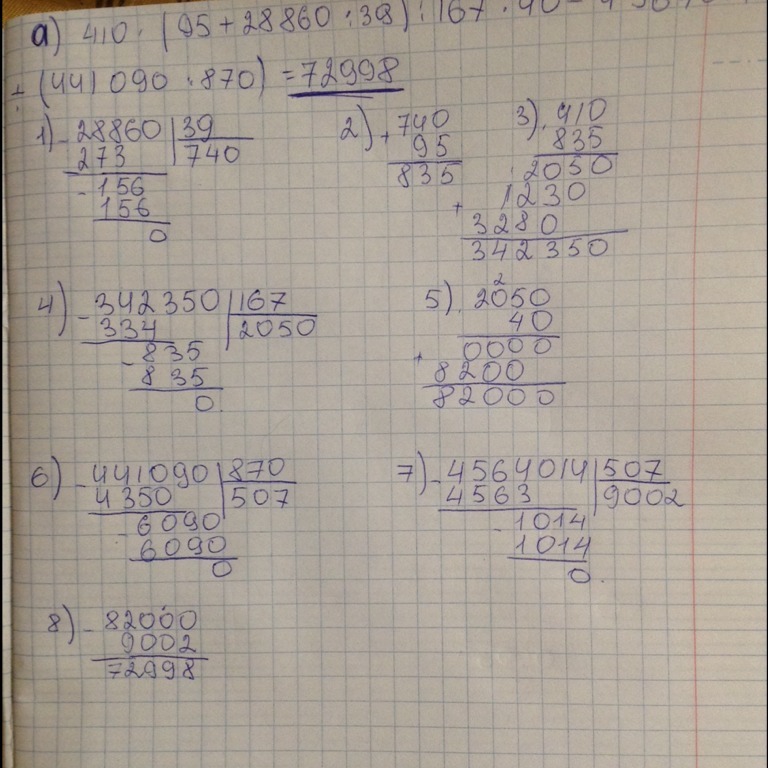 а) 410 · (95 + 28860 : 39) : 167 · 40 -
: (441090 : 870) = 72998
1) - 28860 | 39
273 740
- 156
156
0
2) + 740
95
835
3) · 410
835
2050
+ 1230
3280
342350
4) - 342350 | 167
334 2050
- 835
835
0
5) · 2050
2
40
0000
+ 8200
82000
6) - 441090 | 870
4350 507
- 6090
6090
0
7) - 4564014 | 507
4563 9002
- 1014
1014
0
8) - 82000
9002
72998